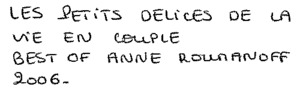 LES PETITS DELICES DE LA
VIE EN COUPLE
BEST OF ANNE ROUMANOFF
2006-